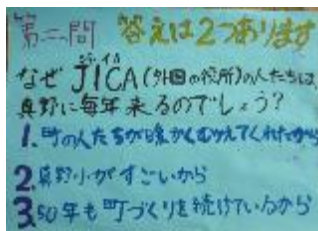 第二問 答えは2つあります
ジャイカ
なぜJICA(外国の役所)の人たちは、
真野に毎年来るのでしょう?
1.町の人たちが暖かくむかえてくれたから
2.真野小がすごいから
3.50年も町づくりを続けているから